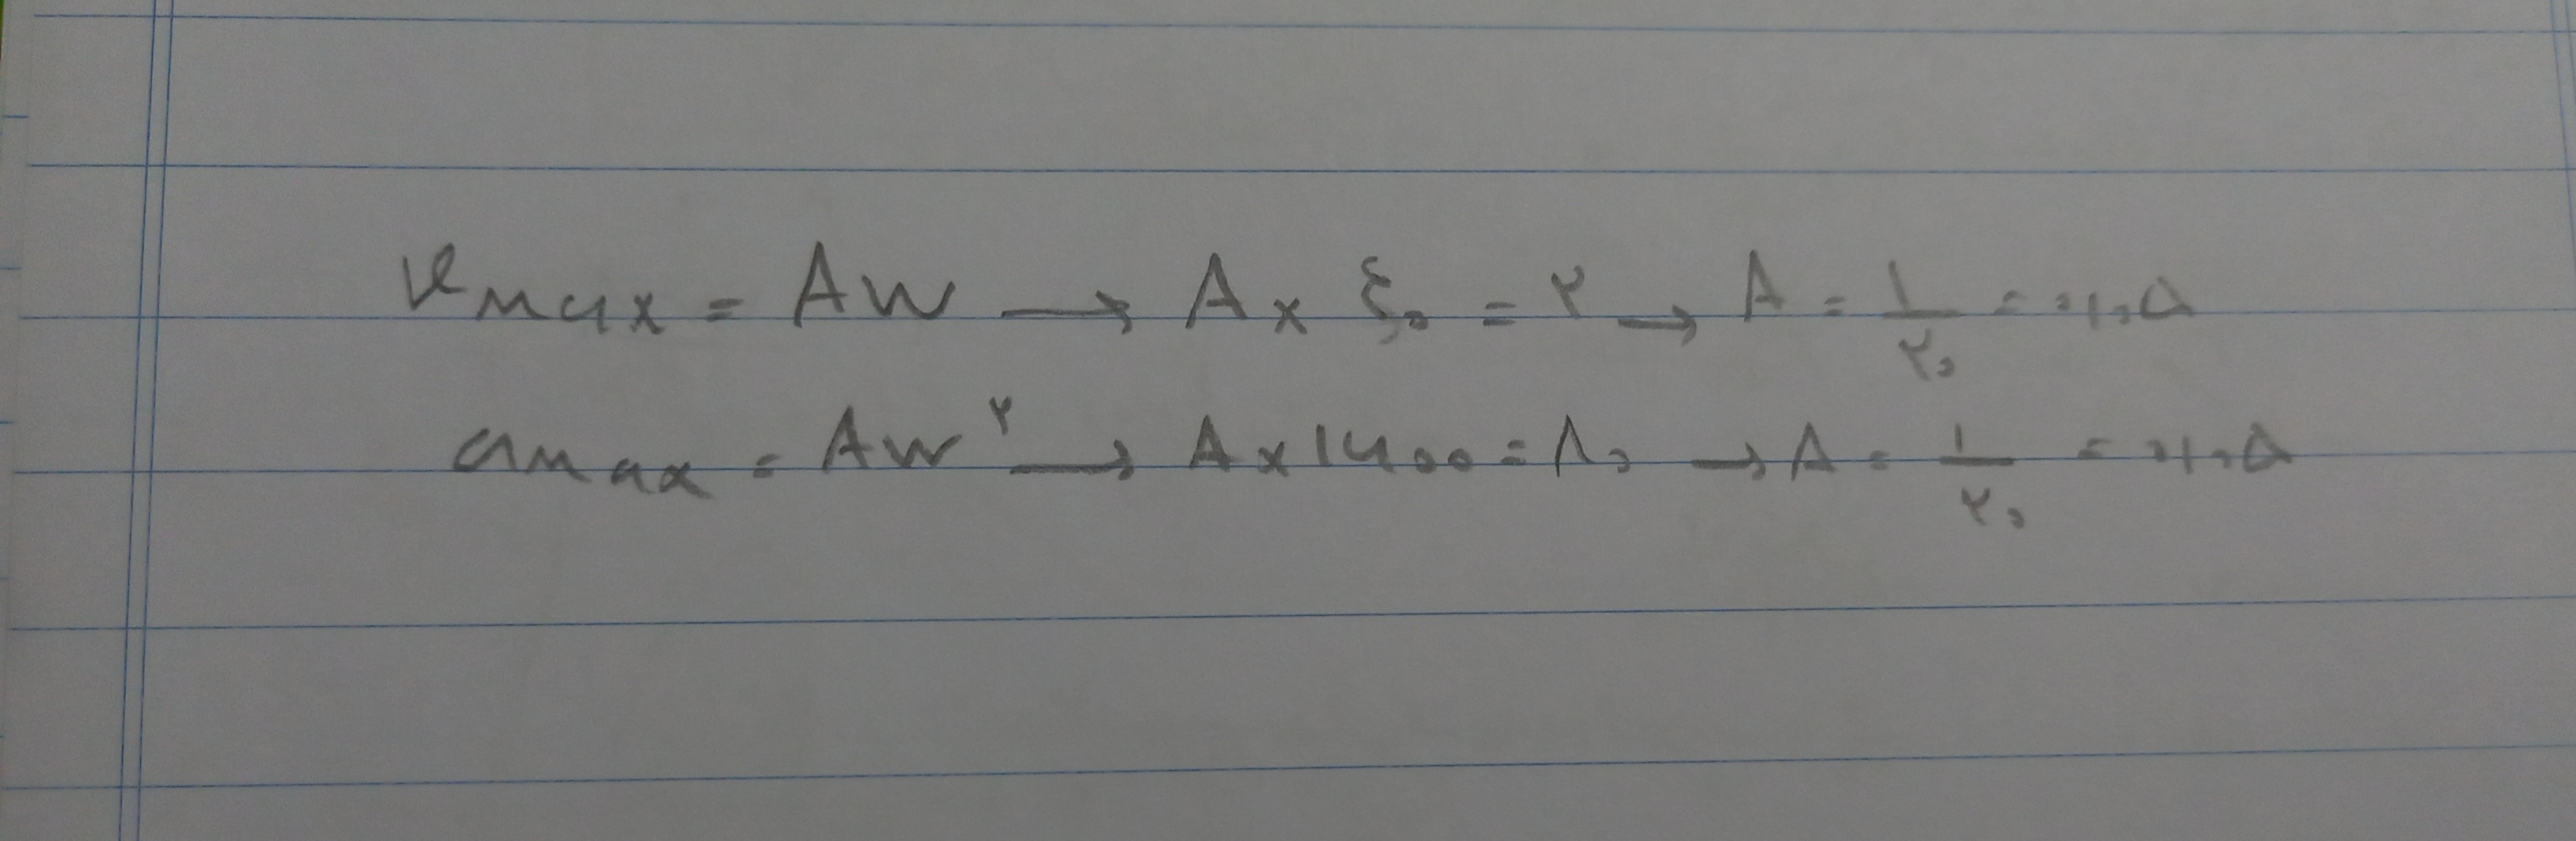 vmax = Aw → A × ۴۰ = ۲ → A = ۱/۲۰ = ۰/۰۵
amax = Aw^۲ → A × ۱۶۰۰ = ۸۰ → A = ۱/۲۰ = ۰/۰۵